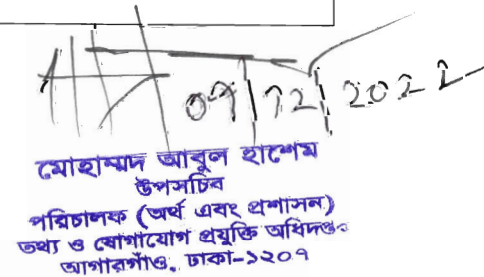 07/12/2022
মোহাম্মদ আবুল হাশেম
উপসচিব
পরিচালক (অর্থ এবং প্রশাসন)
তথ্য ও যোগাযোগ প্রযুক্তি অধিদপ্তর
আগারগাঁও, ঢাকা-১২০৭